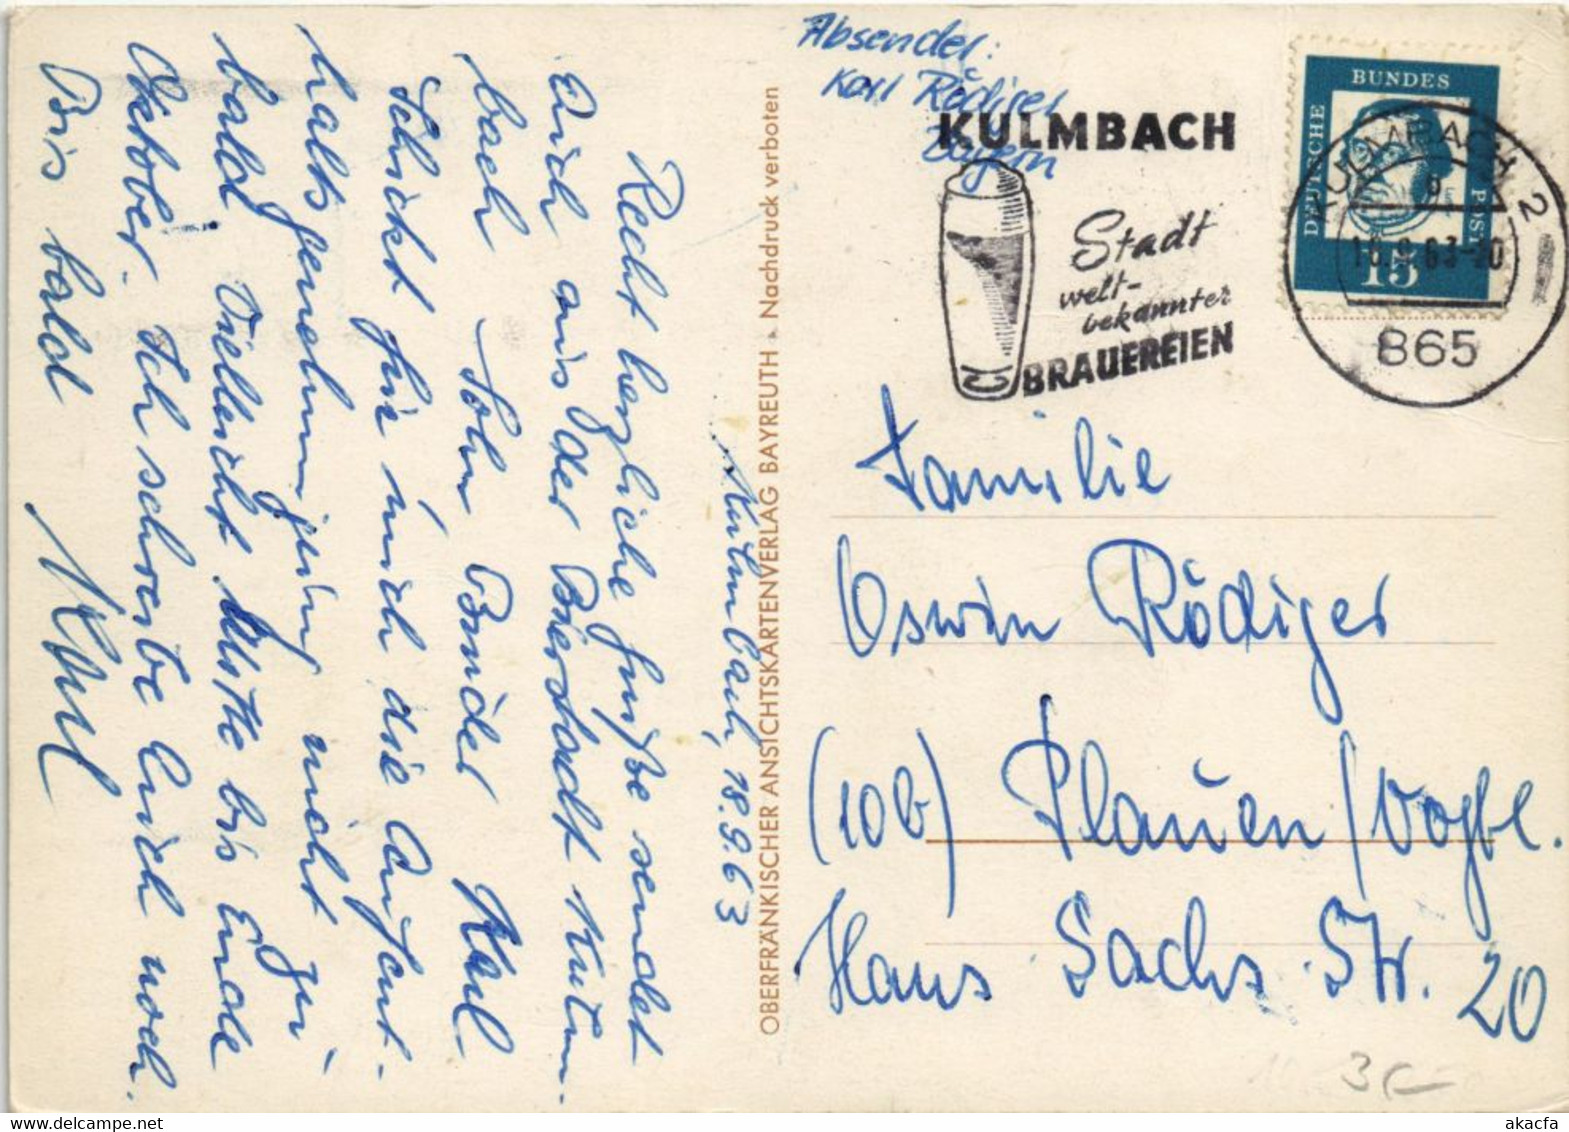 Absender:
Karl Rödiger
Bayern
KULMBACH
Stadt
welt-
bekannter
BRAUEREIEN
DEUTSCHE
BUNDES
POST
15
KULMBACH 2
g
-20
865
Familie
Oswin Rödiger
(10b) Plauen / Vogtl.
Hans Sachs Str. 20
OBERFRÄNKISCHER ANSICHTSKARTENVERLAG BAYREUTH · Nachdruck verboten
Kulmbach, 18.9.63
Recht herzliche Grüße sendet
Euch aus der Bierstadt Kulm-
bach Sohn Bruder Karl
Schickt für mich die Aufent-
haltsgenehmigung nicht zu
bald. Vielleicht Mitte bis Ende
Oktober. Ich schreibe Euch noch.
Bis bald Karl
3,-
www.delcampe.net
akacfa